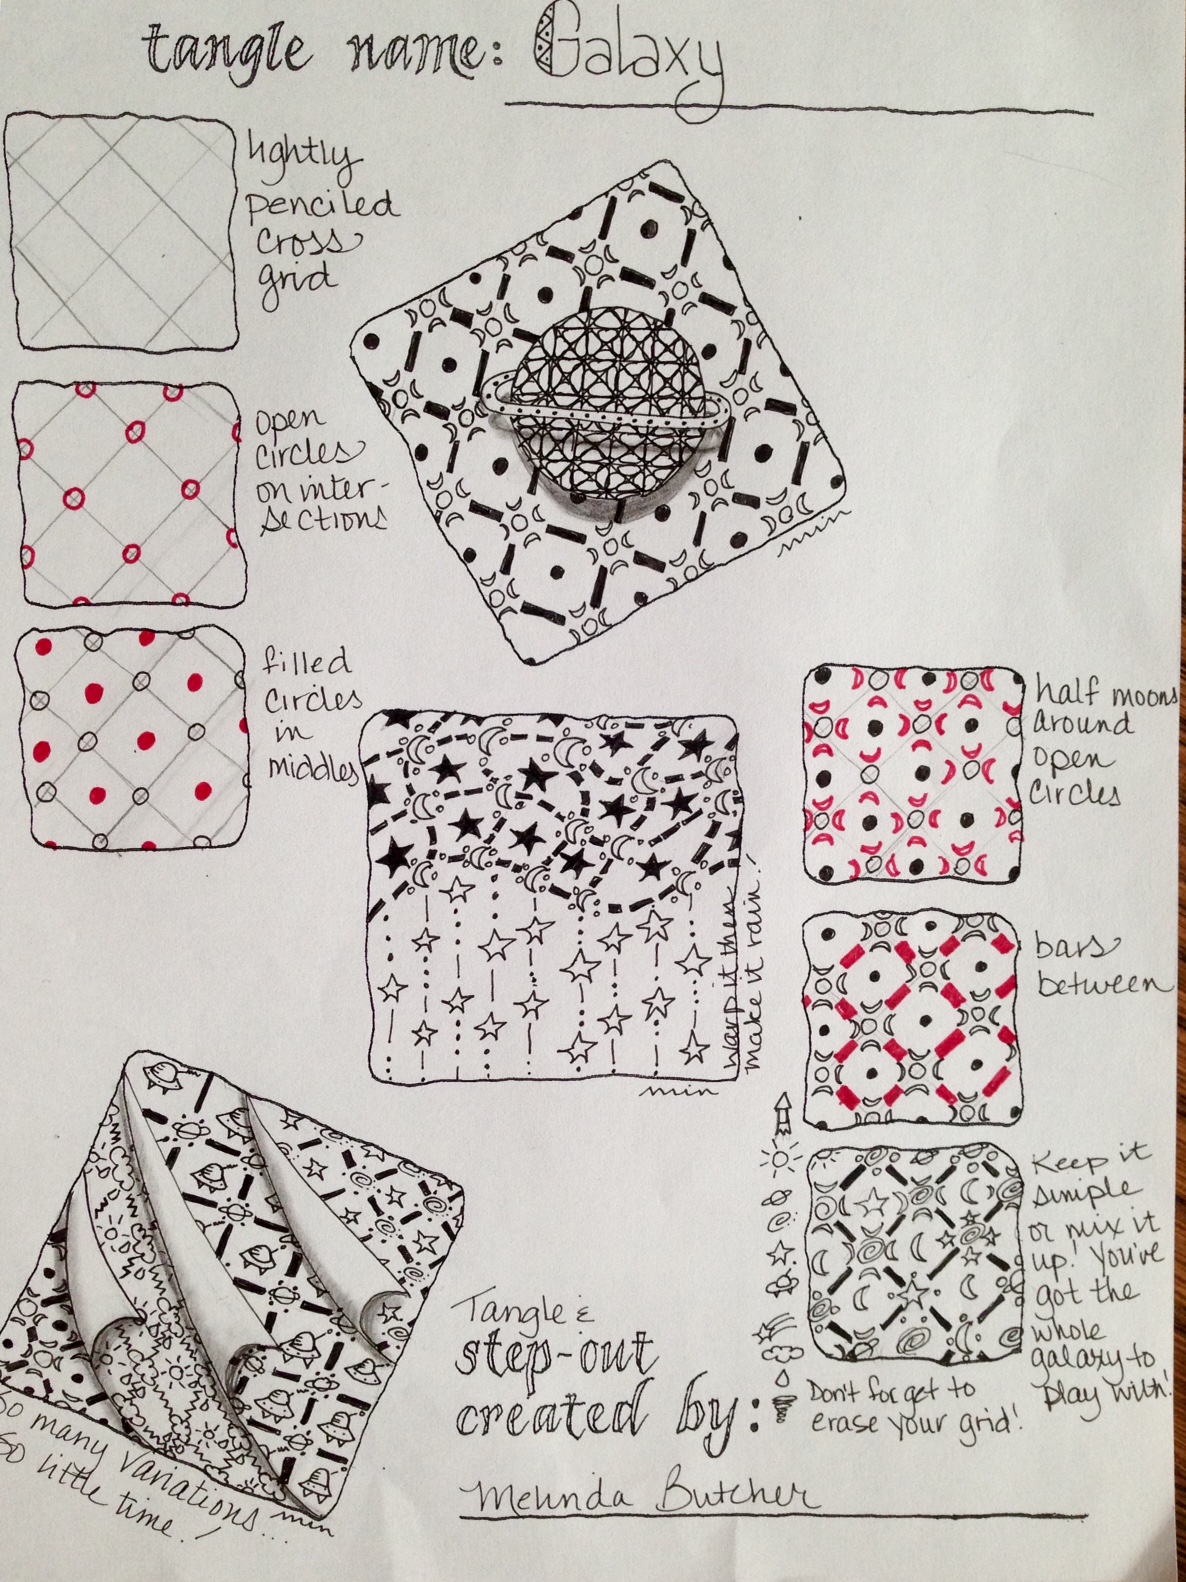 tangle name: Galaxy
lightly
penciled
cross
grid
open
circles
on inter-
sections
filled
circles
in
middles
min
half moons
around
open
circles
warp it then
make it rain!
min
bars
between
Keep it
simple
or mix it
up! You've
got the
whole
galaxy to
play with!
Don't forget to
erase your grid!
So many variations...
So little time!
min
Tangle &
step-out
created by:
Melinda Butcher